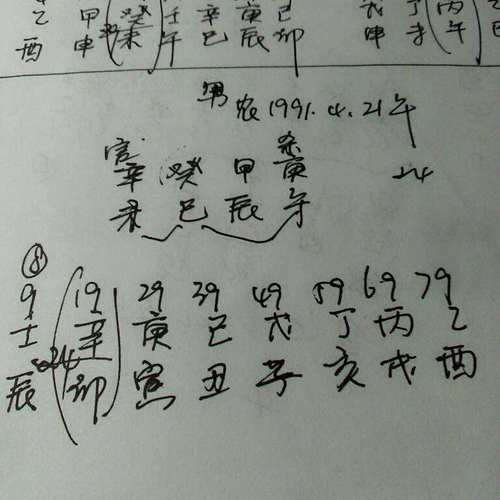 乙 甲 癸 壬 辛 庚 己 戊 丁 丙
酉 申 未 午 巳 辰 卯 申 午
男 农1991.4.21午
官 杀
辛 癸 甲 庚 24
未 巳 辰 午
⑧
9 19 29 39 49 59 69 79
壬 辛 庚 己 戊 丁 丙 乙
辰 24 卯 寅 丑 子 亥 戌 酉